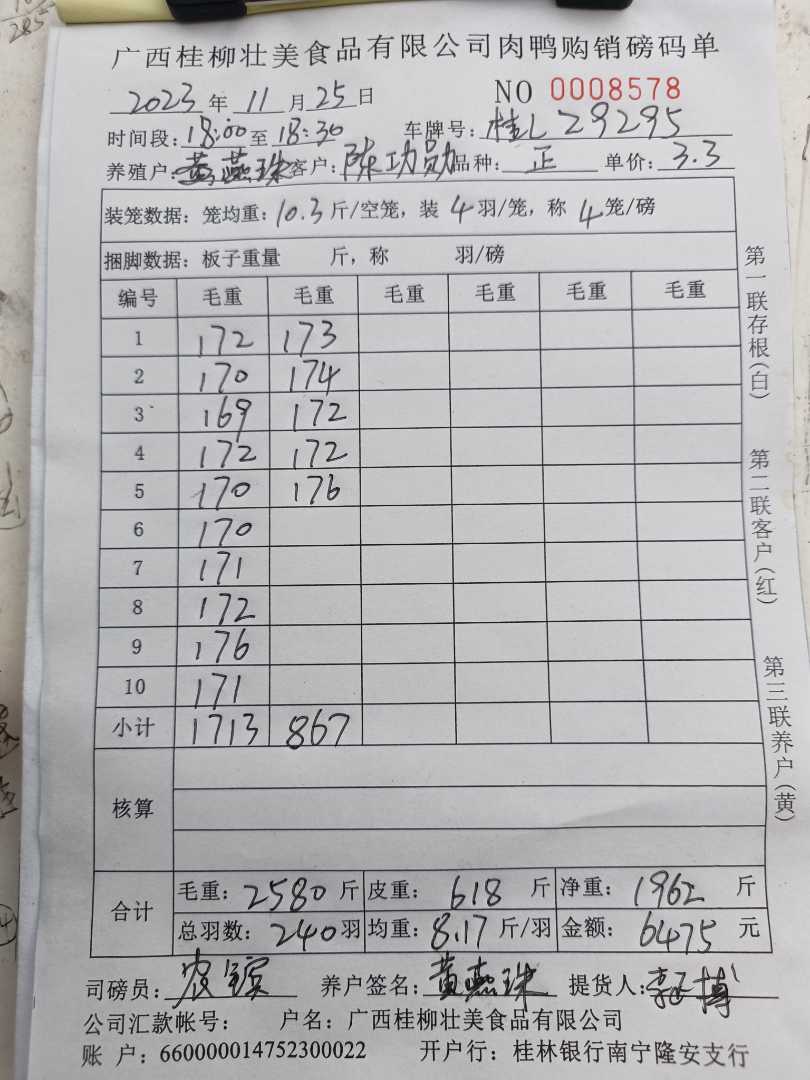 广西桂柳壮美食品有限公司肉鸭购销磅码单
2023年 11月25日 NO 0008578
时间段:18:00至18:30 车牌号:桂L29295
养殖户:黄燕珠 客户:陈功勋 品种:正 单价:3.3
装笼数据:笼均重:10.3斤/空笼,装 4羽/笼,称 4笼/磅
捆脚数据:板子重量 斤,称 羽/磅
编号 毛重 毛重 毛重 毛重 毛重 毛重
1 172 173
2 170 174
3 169 172
4 172 172
5 170 176
6 170
7 171
8 172
9 176
10 171
小计 1713 867
核算
合计 毛重:2580斤 皮重:618斤 净重:1962斤
总羽数:240羽 均重:8.17斤/羽 金额:6475元
司磅员:农 养户签名:黄燕珠 提货人:博
公司汇款帐号: 户名:广西桂柳壮美食品有限公司
账 户:660000014752300022 开户行:桂林银行南宁隆安支行
第一联存根(白) 第二联客户(红) 第三联养户(黄)